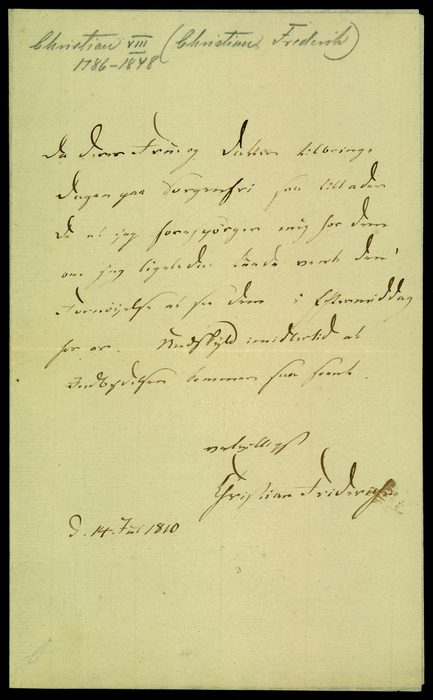 Christian VIII (Christian Frederik)
1786-1848
Da Deres Frue og Datter tilbringe
Dagen paa Sorgenfri saa tillader
De at jeg forespörger mig hos Dem
om jeg ligeledes kunde vente den
Fornöjelse at see Dem i Eftermiddag
her ov. Undskyld imidlertid at
Indbydelsen kommer saa seent.
velvilligst
Christian Friderich
d. 14 Jul 1810